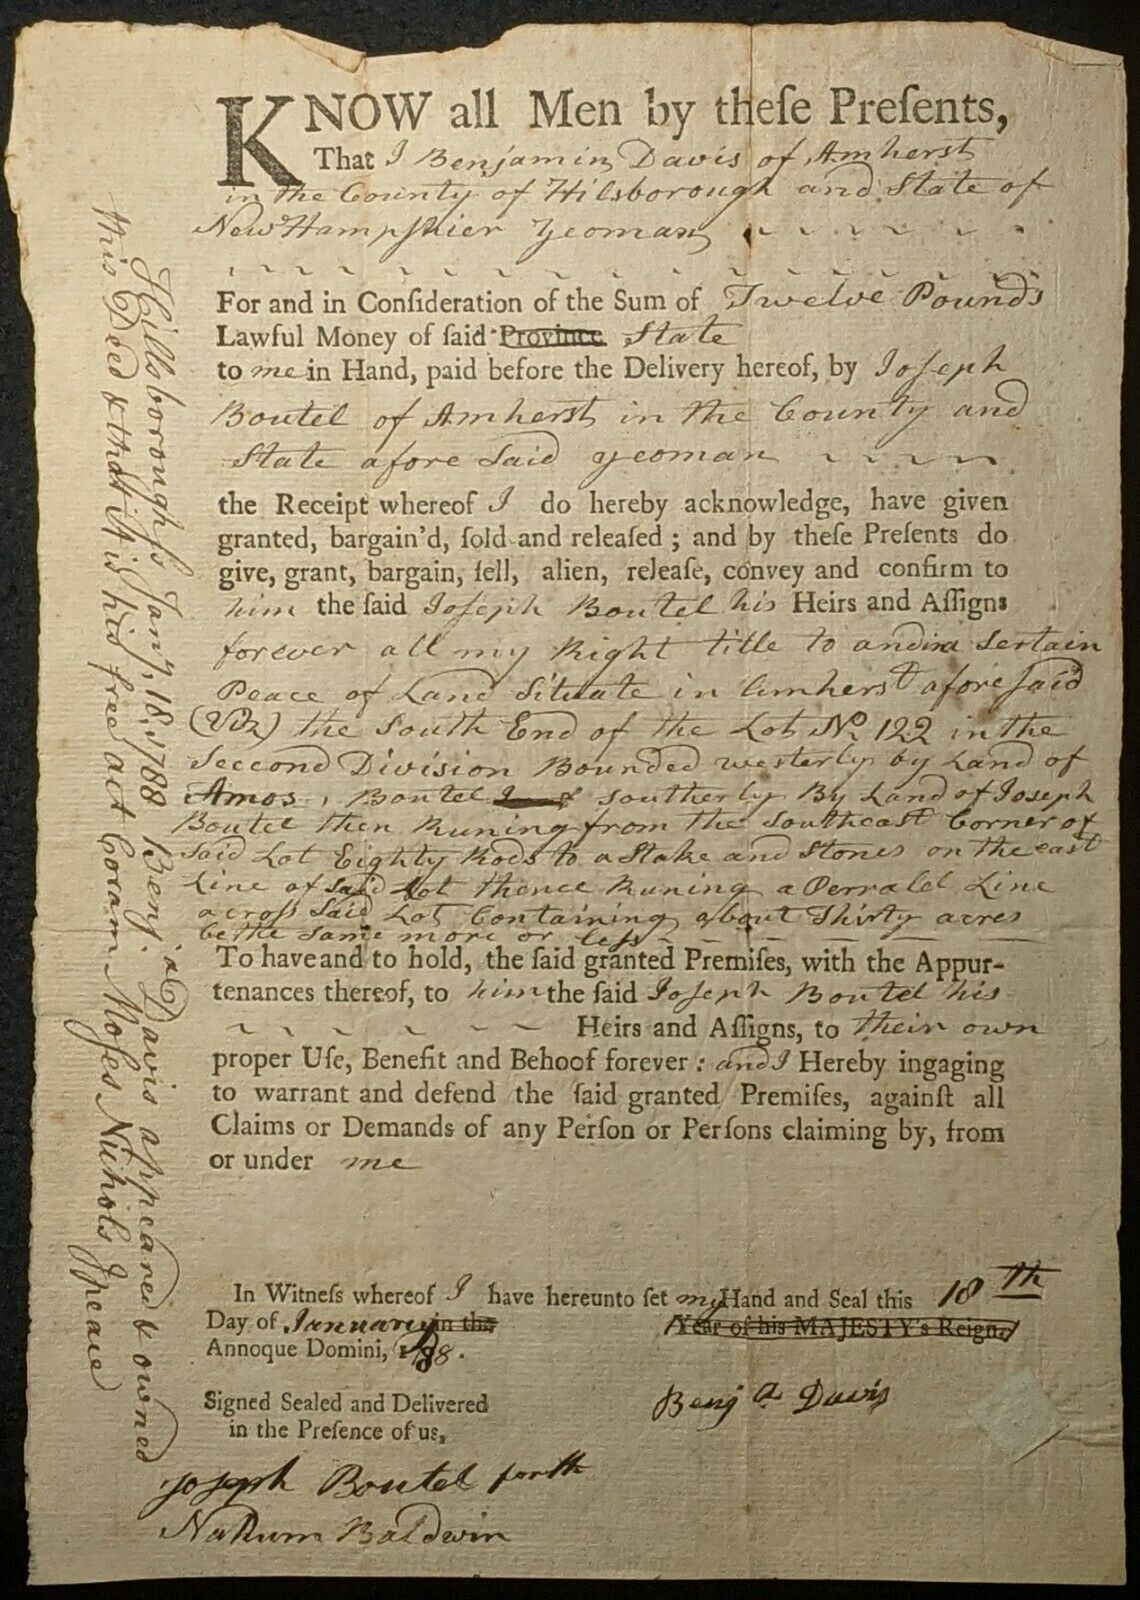 KNOW all Men by theſe Preſents,
That I Benjamin Davis of Amherst
in the County of Hilsborough and State of
New Hampſhier Yeoman
For and in Conſideration of the Sum of Twelve Pounds
Lawful Money of ſaid Province State
to me in Hand, paid before the Delivery hereof, by Joſeph
Boutel of Amherst in the County and
State afore Said yeoman
the Receipt whereof I do hereby acknowledge, have given
granted, bargain'd, ſold and releaſed ; and by theſe Preſents do
give, grant, bargain, ſell, alien, releaſe, convey and confirm to
him the ſaid Joſeph Boutel his Heirs and Aſſigns
forever all my Right title to and in a Sertain
Peace of Land Situate in Amherst afore ſaid
(Viz) the South End of the Lot No 122 in the
Seccond Division Bounded westerly by Land of
Amos Boutel southerly By Land of Joseph
Boutel then Runing from the Southeast Corner of
Said Lot Eighty Rods to a Stake and Stones on the east
Line of Said Lot thence Runing a Perralel Line
acroſs Said Lot Containing about Thirty acres
be the same more or leſs
To have and to hold, the ſaid granted Premiſes, with the Appur-
tenances thereof, to him the ſaid Joſeph Boutel his
Heirs and Aſſigns, to their own
proper Uſe, Benefit and Behoof forever : and I Hereby ingaging
to warrant and defend the ſaid granted Premiſes, againſt all
Claims or Demands of any Perſon or Perſons claiming by, from
or under me
In Witneſs whereof I have hereunto ſet my Hand and Seal this 18th
Day of January in the Year of his MAJESTY's Reign,
Annoque Domini, 1788.
Signed Sealed and Delivered
in the Preſence of us,
Benja Davis
Joseph Boutel forth
Nahum Baldwin
Hillsborough ſs Jany, 18, 1788 Benja Davis appeared & owned
this Deed & that it is his free act Coram Moſes Nichols Jpeace